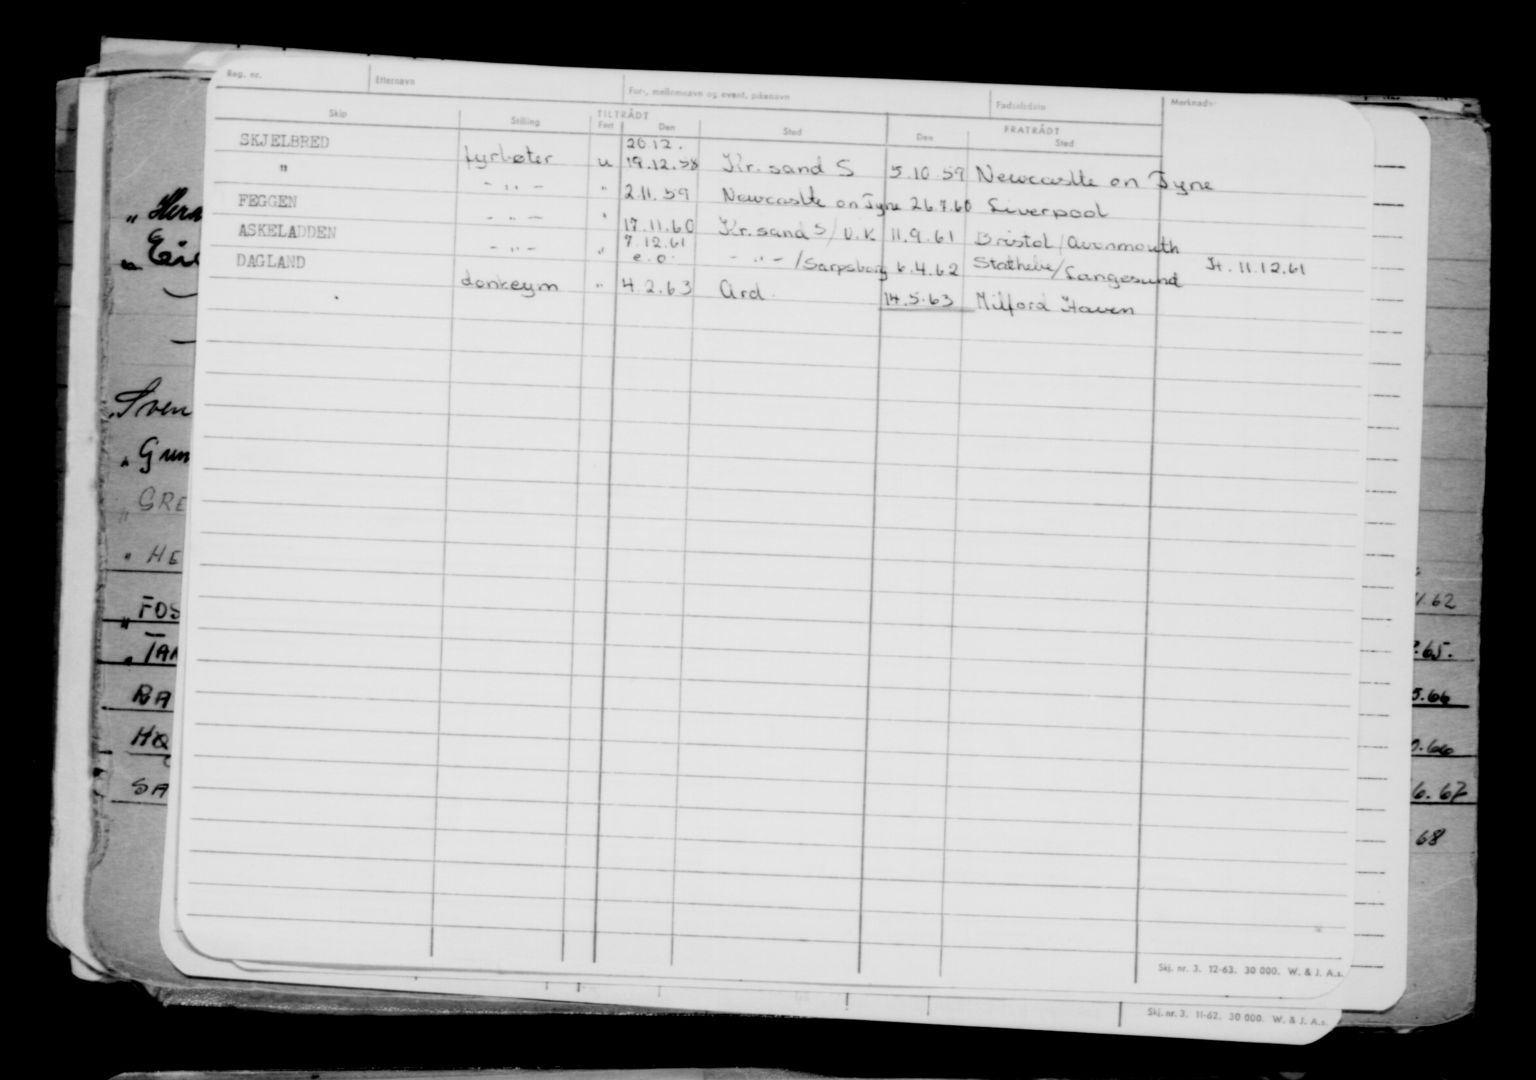 Reg. nr. Etternavn For-, mellomnavn og event. pikenavn Fødselsdato Merknader
TILTRÅDT FRATRÅDT
Skip Stilling Fart Den Sted Den Sted
SKJELBRED fyrbøter u 20.12. 19.12.58 Kr. sand S 5.10.59 Newcastle on Tyne
" - " - " 2.11.59 Newcastle on Tyne 26.7.60 Liverpool
FEGGEN - " - " 17.11.60 Kr. sand S / U.K 11.9.61 Bristol / Avonmouth
ASKELADDEN - " - " 7.12.61 e.o. - " - / Sarpsborg 6.4.62 Stathelle / Langesund It. 11.12.61
DAGLAND donkeym " 4.2.63 Ard. 14.5.63 Milford Haven
" Eri
Sven
" Gun
" GRE
" HE
" FOS 62
" TAN .65.
BA 5.66
.66
SA 6.67
68
Skj. nr. 3. 12-63. 30 000. W. & J. A.s.
Skj. nr. 3. 11-62. 30 000. W. & J. A.s.